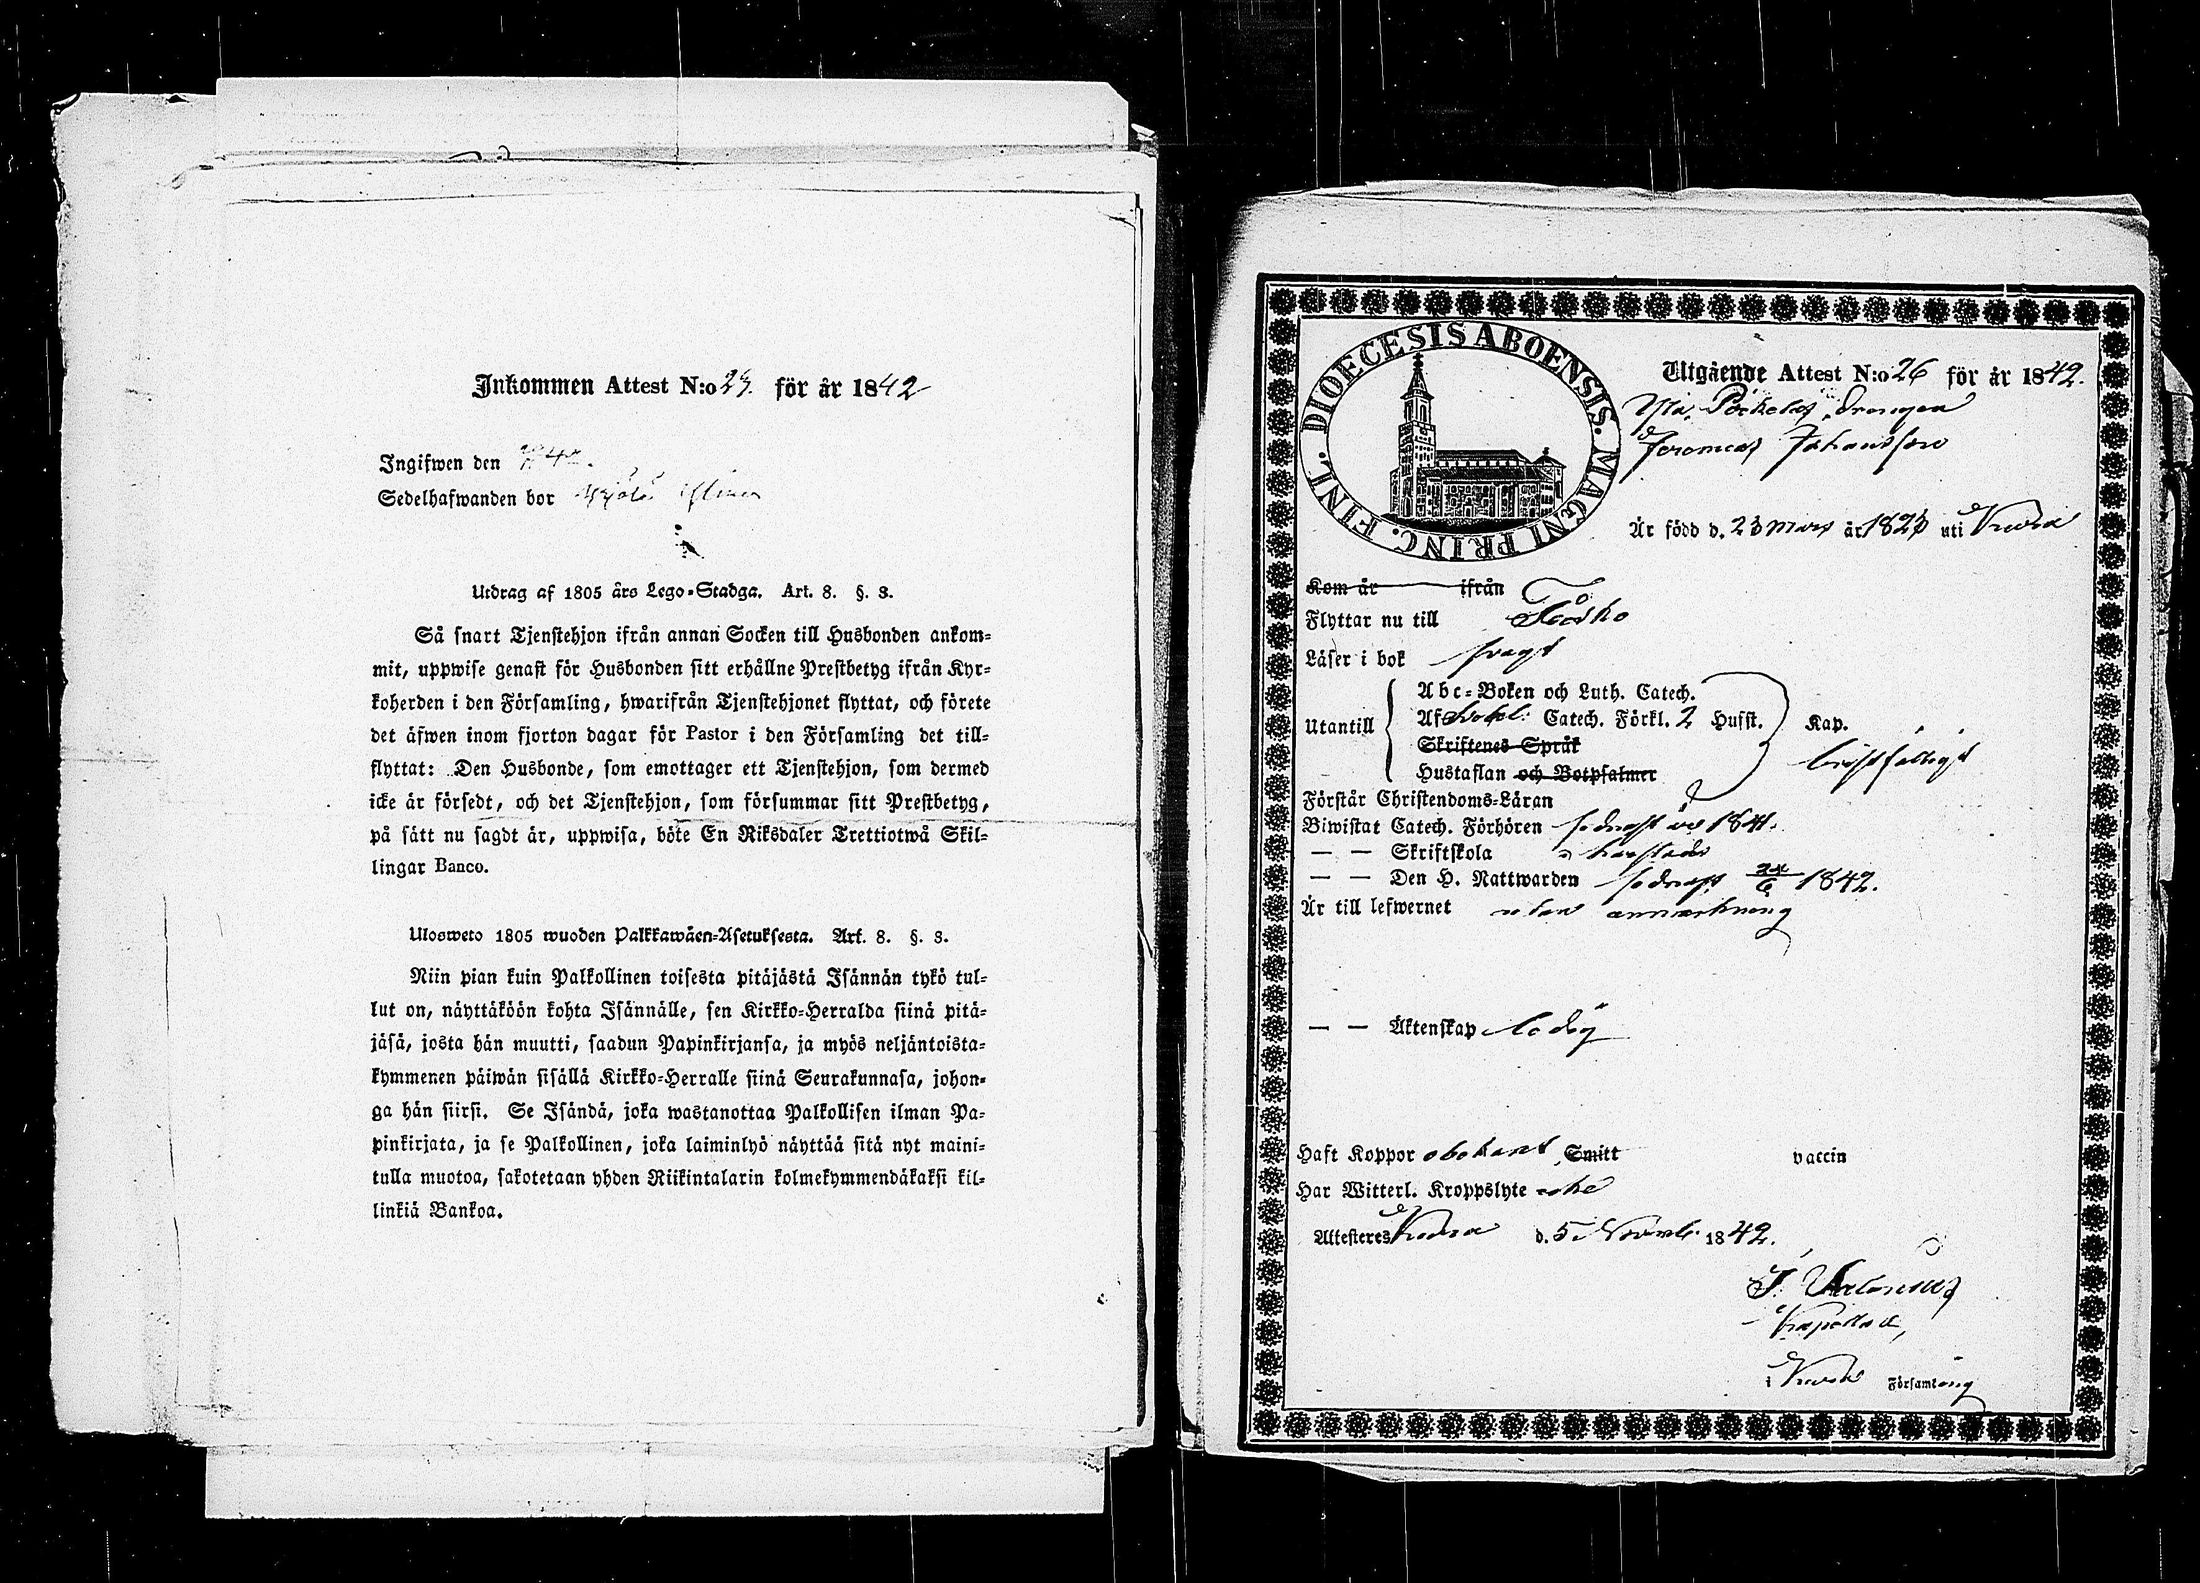 Inkommen Attest N:o 29. för år 1842
Ingifwen den
Sedelhafwanden bor
Utdrag af 1805 års Lego-Stadga. Art. 8. §. 3.
Så snart Tjenstehjon ifrån annan Socken till Husbonden ankom-
mit, uppwise genast för Husbonden sitt erhållne Prestbetyg ifrån Kyr-
koherden i den Församling, hwarifrån Tjenstehjonet flyttat, och förete
det äfwen inom fjorton dagar för Pastor i den Församling det till-
flyttat: Den Husbonde, som emottager ett Tjenstehjon, som dermed
icke är försedt, och det Tjenstehjon, som försummar sitt Prestbetyg,
på sätt nu sagdt är, uppwisa, böte En Riksdaler Trettiotwå Skil-
lingar Banco.
Ulosweto 1805 wuoden Palkkawäen-Asetuksesta. Art. 8. §. 3.
Niin pian kuin Palkollinen toisesta pitäjästä Isännän tykö tul-
lut on, näyttäköön kohta Isännälle, sen Kirkko-Herralda siinä pitä-
jäsä, josta hän muutti, saadun Papinkirjansa, ja myös neljäntoista-
kymmenen päiwän sisällä Kirkko-Herralle siinä Seurakunnasa, johon-
ga hän siirsi. Se Isändä, joka wastanottaa Palkollisen ilman Pa-
pinkirjata, ja se Palkollinen, joka laiminlyö näyttää sitä nyt maini-
tulla muotoa, sakotetaan yhden Riikintalarin kolmekymmendäkaksi kil-
linkiä Bankoa.
DIOECESIS ABOENSIS. MAGNI PRINC. FINL.
Utgående Attest N:o 26 för år 1842.
Drengen
Jeremias Johansson
Är född d. 23 Mars år 1823 uti
Kom år ifrån
Flyttar nu till Töfsko
Läser i bok svagt
Utantill
Abc-Boken och Luth. Catech.
Af Catech. Förkl. 2 Husst. Kap.
Skriftenes Språk
Hustaflan och Botpsalmer
bristfälligt
Förstår Christendoms-Läran
Biwistat Catech. Förhören sednast år 1841.
— — Skriftskola
— — Den H. Nattwarden sednast 24/6 1842.
Är till lefwernet utan anmärkning
— — Äktenskap ledig
Haft Koppor obekant Smitt vaccin
Har Witterl. Kroppslyte icke
Attesteres d. 5 Novemb. 1842.
Kapellan,
i Församling